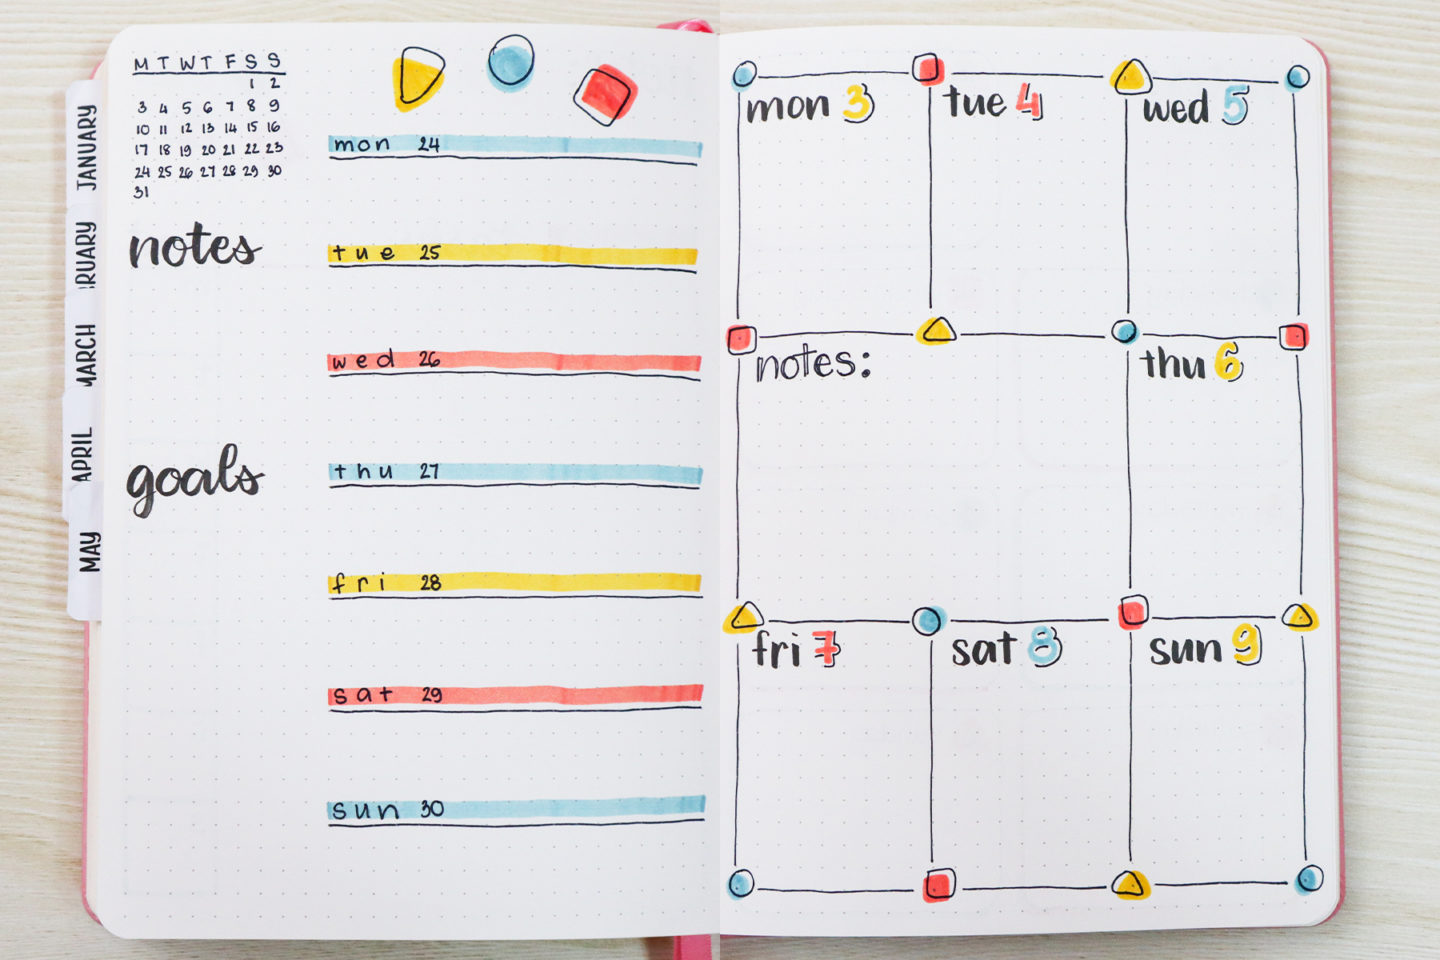 JANUARY
RUARY
MARCH
APRIL
MAY
M T W T F S S
1 2
3 4 5 6 7 8 9
10 11 12 13 14 15 16
17 18 19 20 21 22 23
24 25 26 27 28 29 30
31
notes
goals
mon 24
tue 25
wed 26
thu 27
fri 28
sat 29
sun 30
mon 3
tue 4
wed 5
notes:
thu 6
fri 7
sat 8
sun 9